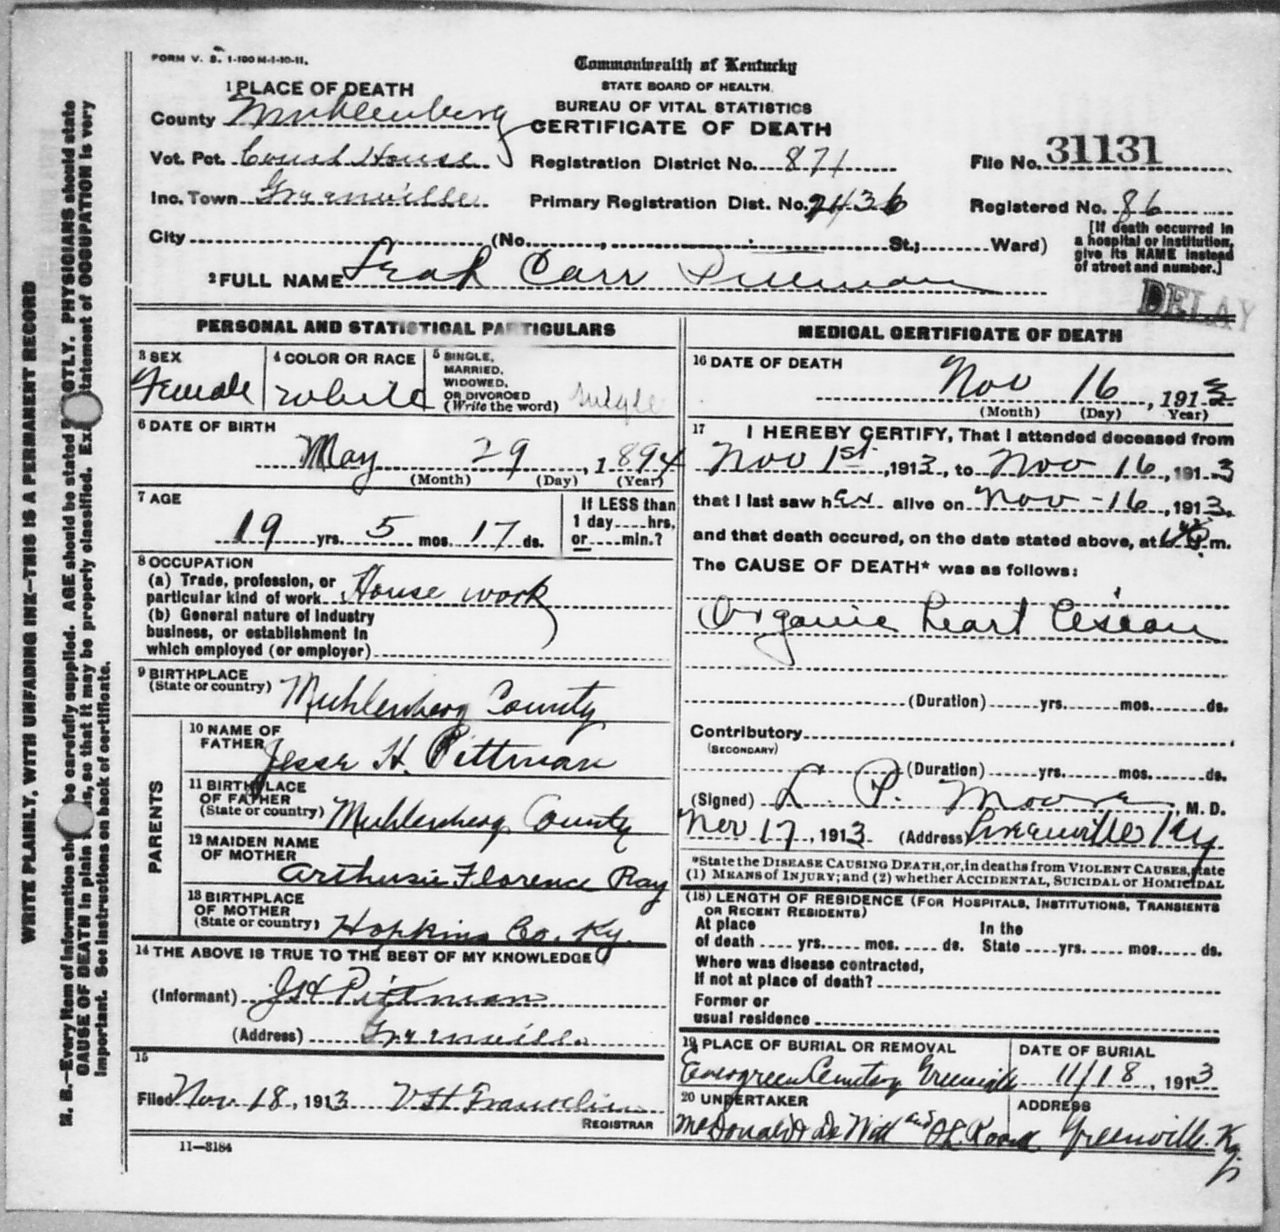 FORM V. S. 1-100 M-1-10-11.
Commonwealth of Kentucky
STATE BOARD OF HEALTH
BUREAU OF VITAL STATISTICS
CERTIFICATE OF DEATH
1 PLACE OF DEATH
County Muhlenberg
Vot. Pct. Court House
Registration District No. 871
File No. 31131
Inc. Town Greenville
Primary Registration Dist. No. 2436
Registered No. 86
City (No. , St.; Ward)
[If death occurred in
a hospital or institution,
give its NAME instead
of street and number.]
2 FULL NAME Leah Carr Pittman
DELAY
PERSONAL AND STATISTICAL PARTICULARS
3 SEX
Female
4 COLOR OR RACE
White
5 SINGLE,
MARRIED,
WIDOWED,
OR DIVORCED
(Write the word)
Single
6 DATE OF BIRTH
May 29, 1894
(Month) (Day) (Year)
7 AGE
19 yrs. 5 mos. 17 ds.
If LESS than
1 day hrs,
or min.?
8 OCCUPATION
(a) Trade, profession, or
particular kind of work House work
(b) General nature of industry
business, or establishment in
which employed (or employer)
9 BIRTHPLACE
(State or country) Muhlenberg County
PARENTS
10 NAME OF
FATHER Jesse H. Pittman
11 BIRTHPLACE
OF FATHER
(State or country) Muhlenberg County
12 MAIDEN NAME
OF MOTHER
Arthusie Florence Ray
13 BIRTHPLACE
OF MOTHER
(State or country) Hopkins Co. Ky.
14 THE ABOVE IS TRUE TO THE BEST OF MY KNOWLEDGE
(Informant) J H Pittman
(Address) Greenville
15
Filed Nov 18, 1913 V H Franklin
REGISTRAR
11—3184
MEDICAL CERTIFICATE OF DEATH
16 DATE OF DEATH
Nov 16, 1913
(Month) (Day) Year)
17 I HEREBY CERTIFY, That I attended deceased from
Nov 1st, 1913, to Nov 16, 1913
that I last saw her alive on Nov - 16, 1913.
and that death occured, on the date stated above, at m.
The CAUSE OF DEATH* was as follows:
Organic heart lesion
(Duration) yrs. mos. ds.
Contributory
(SECONDARY)
(Duration) yrs. mos. ds.
(Signed) L. P. Moore, M. D.
Nov 17, 1913 (Address) Greenville Ky
*State the DISEASE CAUSING DEATH, or, in deaths from VIOLENT CAUSES, state
(1) MEANS OF INJURY; and (2) whether ACCIDENTAL, SUICIDAL or HOMICIDAL
(18) LENGTH OF RESIDENCE (FOR HOSPITALS, INSTITUTIONS, TRANSIENTS
OR RECENT RESIDENTS)
At place In the
of death yrs. mos. ds. State yrs. mos. ds.
Where was disease contracted,
If not at place of death?
Former or
usual residence
19 PLACE OF BURIAL OR REMOVAL
Evergreen Cemetery Greenville
DATE OF BURIAL
11/18, 1913
20 UNDERTAKER
McDonald & DeWitt and
ADDRESS
Greenville. Ky.
WRITE PLAINLY, WITH UNFADING INK—THIS IS A PERMANENT RECORD
N. B.—Every item of information should be carefully supplied. AGE should be stated EXACTLY. PHYSICIANS should state
CAUSE OF DEATH in plain terms, so that it may be properly classified. Exact statement of OCCUPATION is very
important. See instructions on back of certificate.